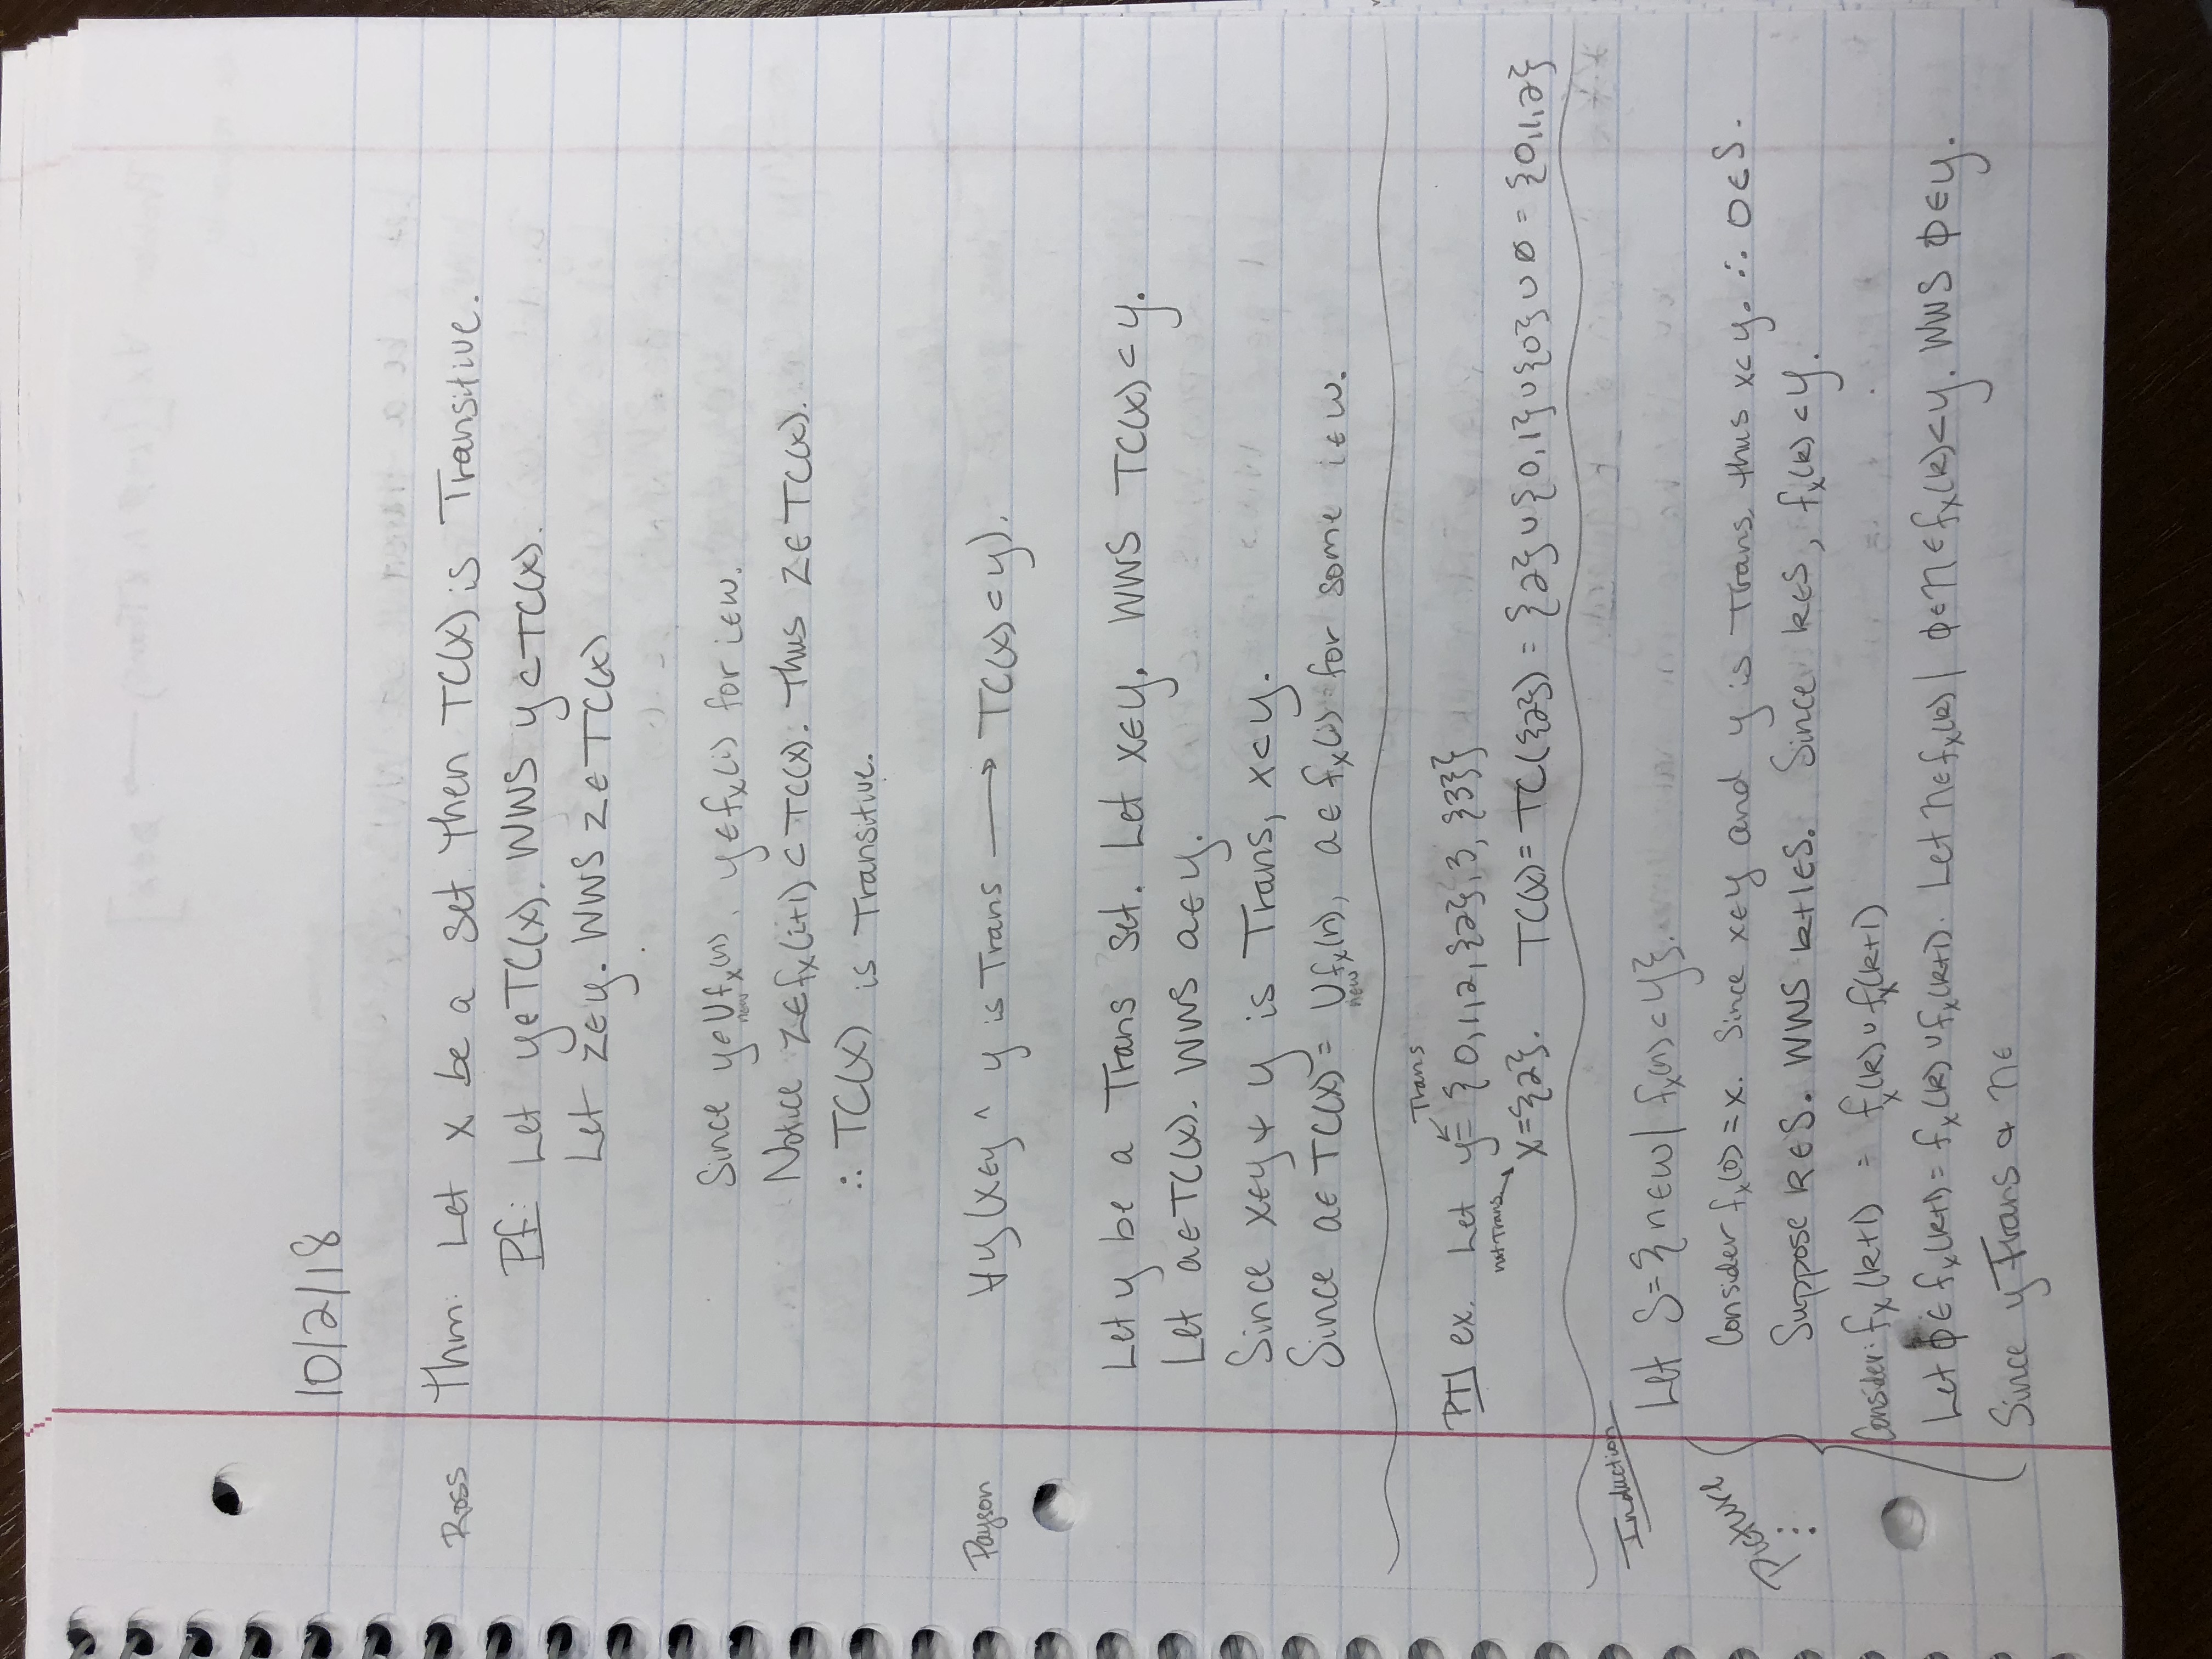 10/2/18
Ross Thm: Let x be a set. Then TC(x) is Transitive.
Pf: Let y∈TC(x). WWS y⊂TC(x).
Let z∈y. WWS z∈TC(x)
Since y∈∪fₓ(n), y∈fₓ(i) for i∈w.
n∈w
Notice z∈fₓ(i+1)⊂TC(x). Thus z∈TC(x).
∴ TC(x) is Transitive.
Payson ∀y(x∈y ^ y is Trans ⟶ TC(x)⊂y).
Let y be a Trans set. Let x∈y. WWS TC(x)⊂y.
Let a∈TC(x). WWS a∈y.
Since x∈y + y is Trans, x⊂y.
Since a∈TC(x)= ∪fₓ(n), a∈fₓ(i) for some i∈w.
n∈w
Trans
PTJ ex. Let y= {0,1,2,{2},3,{3}}
not Trans
x={2}. TC(x)= TC({2}) = {2}∪{0,1}∪{0}∪∅ = {0,1,2}
Induction
Let S={n∈w| fₓ(n)⊂y}.
Picture ...
Consider fₓ(0)=x. Since x∈y and y is Trans, thus x⊂y. ∴ 0∈S.
Suppose k∈S. WWS k+1∈S. Since k∈S, fₓ(k)⊂y.
Consider: fₓ(k+1) = fₓ(k)∪fₓ(k+1)
Let ϕ∈fₓ(k+1)=fₓ(k)∪fₓ(k+1). Let n∈fₓ(k)| ϕ∈n∈fₓ(k)⊂y. WWS ϕ∈y.
Since y Trans & n∈